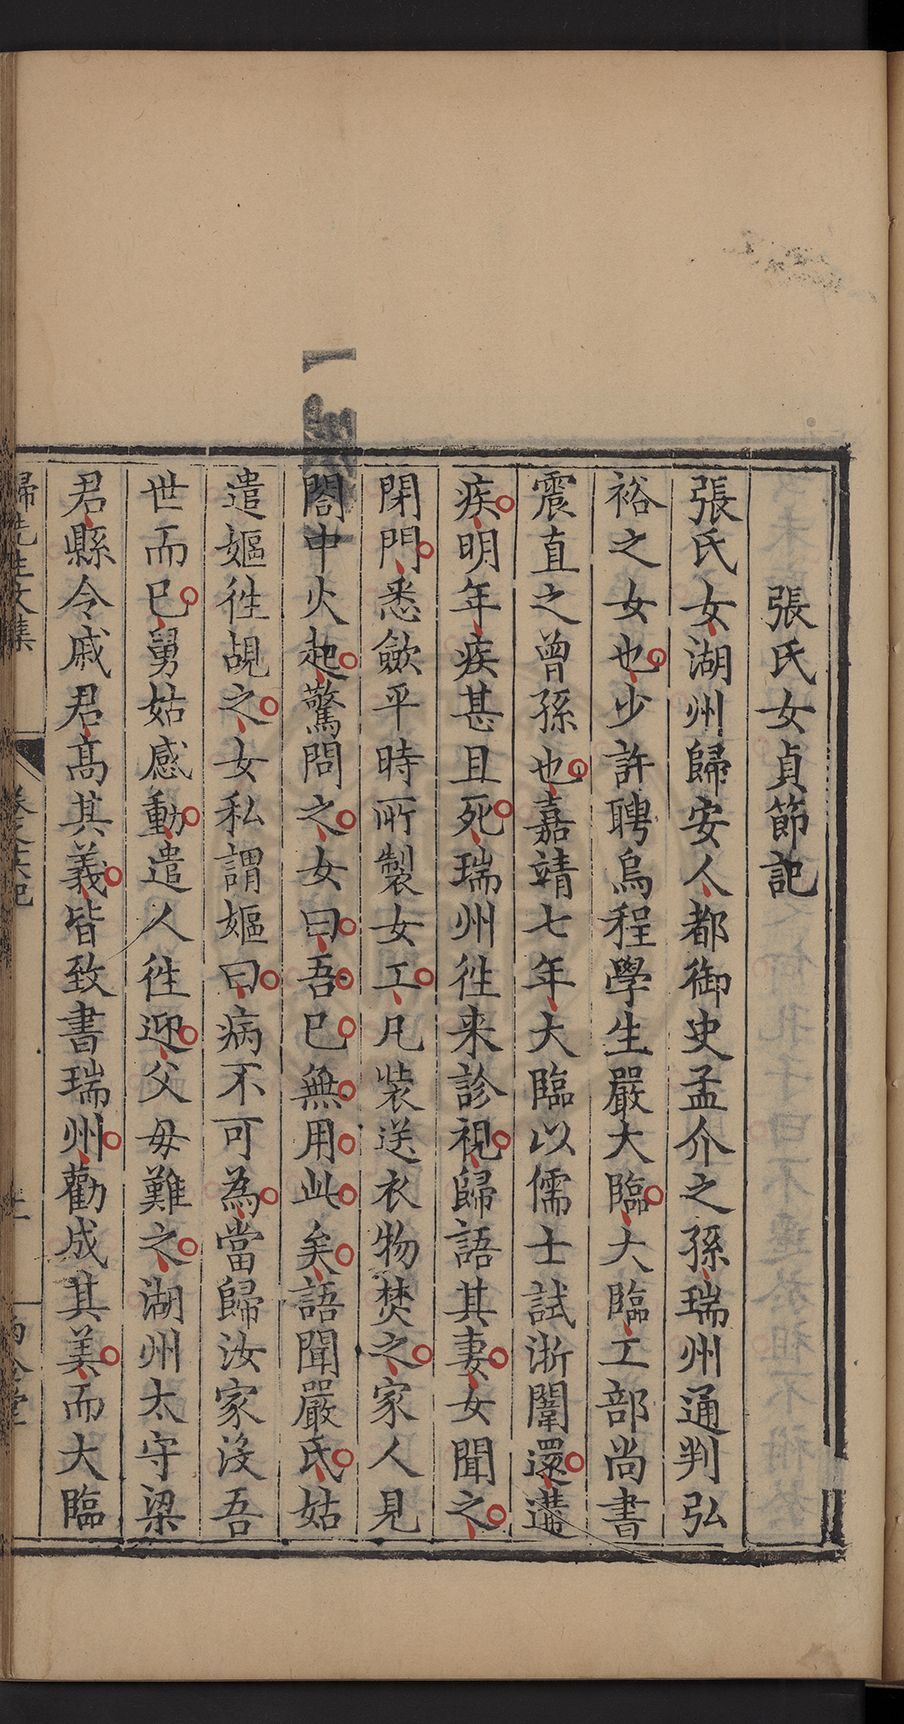 張氏女貞節記
張氏女湖州歸安人都御史孟介之孫瑞州通判弘
裕之女也少許聘烏程學生嚴大臨大臨工部尚書
震直之曾孫也嘉靖七年大臨以儒士試浙闈還遘
疾明年疾甚且死瑞州徃来診視歸語其妻女聞之
閉門悉斂平時所製女工凡裝送衣物焚之家人見
閤中火起驚問之女曰吾已無用此矣語聞嚴氏姑
遣嫗徃覘之女私謂嫗曰病不可為當歸汝家沒吾
世而已舅姑感動遣人徃迎父母難之湖州太守梁
君縣令戚君高其義皆致書瑞州勸成其美而大臨
歸先生文集